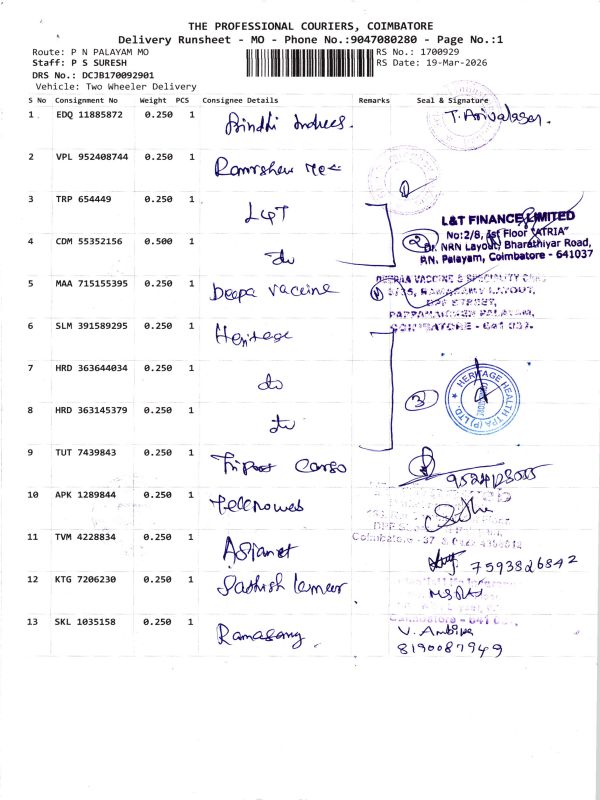 THE PROFESSIONAL COURIERS, COIMBATORE
Delivery Runsheet - MO - Phone No.:9047080280 - Page No.:1
Route: P N PALAYAM MO
RS No.: 1700929
Staff: P S SURESH
RS Date: 19-Mar-2026
DRS No.: DCJB170092901
Vehicle: Two Wheeler Delivery
S No Consignment No Weight PCS Consignee Details Remarks Seal & Signature
1 EDQ 11885872 0.250 1 T. Arivalasan.
2 VPL 952408744 0.250 1
3 TRP 654449 0.250 1 L&T
L&T FINANCE LIMITED
No:2/8, 1st Floor "ATRIA"
4 CDM 55352156 0.500 1 do 2 Dr. NRN Layout, Bharathiyar Road,
P.N. Palayam, Coimbatore - 641037
5 MAA 715155395 0.250 1 Deepa Vaccine
DEEPAA VACCINE & SPECIALITY CARE
RAMASAMY LAYOUT,
DPF STREET,
PAPPANAICKEN PALAYAM,
COIMBATORE - 641 037.
6 SLM 391589295 0.250 1 Heritage
7 HRD 363644034 0.250 1 do
3 HERITAGE HEALTH TPA (P) LTD.
8 HRD 363145379 0.250 1 do
9 TUT 7439843 0.250 1 Cargo
10 APK 1289844 0.250 1
11 TVM 4228834 0.250 1 Asianet
Coimbatore - 37
7593826842
12 KTG 7206230 0.250 1 Sathish
13 SKL 1035158 0.250 1 Ramasamy
V. Ambika
8190087949